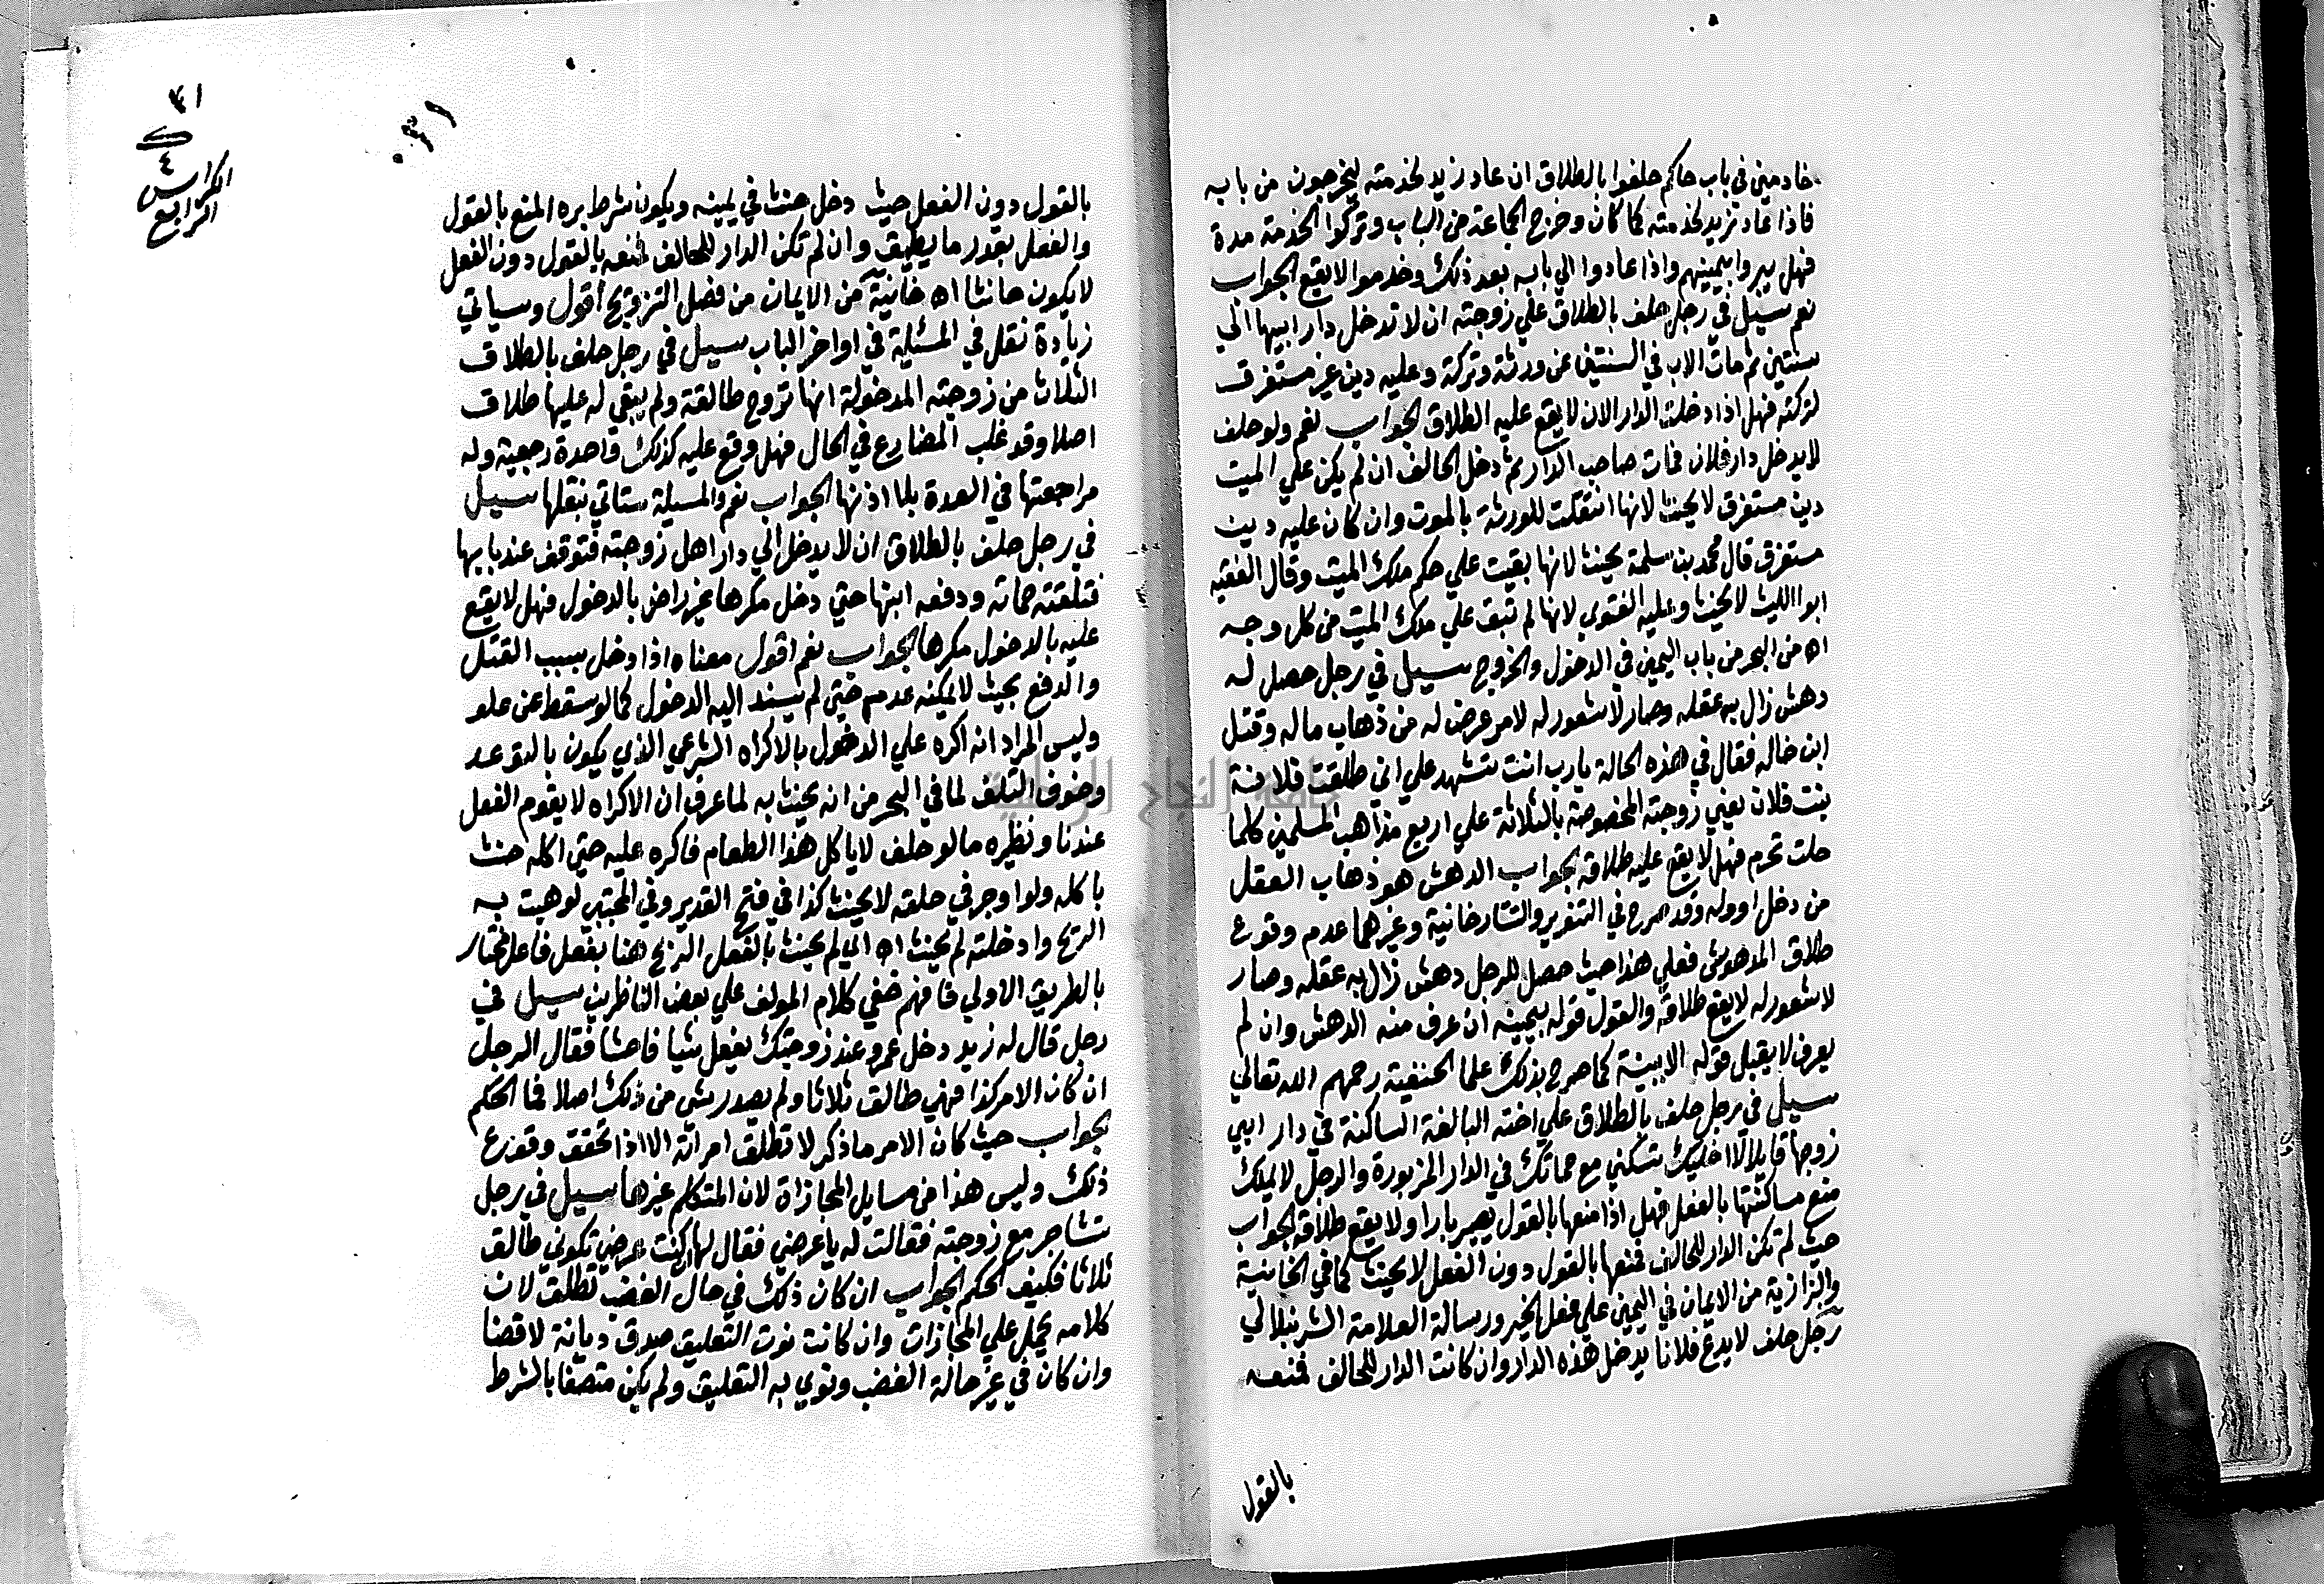 خادمين في باب حاكم حلفوا بالطلاق ان عاد زيد لخدمته ليخرجون من بابه
فاذا عاد زيد لخدمته كما كان وخرج الجماعة من الباب وتركوا الخدمة مدة
فهل يبروا بيمينهم واذا عادوا الي بابه بعد ذلك وخدموا لا يقع الجواب
نعم سيل في رجل حلف بالطلاق علي زوجته ان لا تدخل دار ابيها الي
سنتين ثم مات الاب في السنتين عن ورثة وتركة وعليه دين غير مستغرق
لتركته فهل اذا دخلت الدار الان لا يقع عليه الطلاق الجواب نعم ولو حلف
لا يدخل دار فلان فمات صاحب الدار ثم دخل الحالف ان لم يكن علي الميت
دين مستغرق لا يحنث لانها انتقلت للورثة بالموت وان كان عليه دين
مستغرق قال محمد بن سلمة يحنث لانها بقيت علي حكم ملك الميت وقال الفقيه
ابو الليث لا يحنث وعليه الفتوي لانها لم تبق علي ملك الميت من كل وجه
اه من البحر من باب اليمين في الدخول والخروج سيل في رجل حصل له
دهش زال به عقله وصار لا شعور له لامر عرض له من ذهاب ماله وقتل
ابن خاله فقال في هذه الحالة يا رب انت تشهد علي اني طلقت فلانة
بنت فلان يعني زوجته المخصوصة بالثلاثة علي اربع مذاهب المسلمين كلما
حلت تحرم فهل لا يقع عليه طلاقه الجواب الدهش هو ذهاب العقل
من دخل او وله وقد صرح في التنوير والتتارخانية وغيرهما عدم وقوع
طلاق المدهوش فعلي هذا حيث حصل للرجل دهش زال به عقله وصار
لا شعور له لا يقع طلاقه والقول قوله بيمينه ان عرف منه الدهش وان لم
يعرف لا يقبل قوله الا ببينة كما صرح بذلك علما الحنفية رحمهم الله تعالي
سيل في رجل حلف بالطلاق علي اخته البالغة الساكنة في دار ابي
زوجها قايلا لا اخليك تسكني مع حماتك في الدار المزبورة والرجل لا يملك
منع مساكنتها بالفعل فهل اذا منعها بالقول يصير بارا ولا يقع طلاقه الجواب
حيث لم تكن الدار للحالف فمنعها بالقول دون الفعل لا يحنث كما في الخانية
والبزازية من الايمان في اليمين علي فعل الخير ورسالة العلامة الشرنبلالي
رجل حلف لا يدع فلانا يدخل هذه الدار وان كانت الدار للحالف فمنعه
بالقول
٣١
٤
الكراس
الرابع
بالقول دون الفعل حيث دخل حنث في يمينه ويكون شرط بره المنع بالقول
والفعل بقدر ما يطيق وان لم تكن الدار للحالف فمنعه بالقول دون الفعل
لا يكون حانثا اه خانية من الايمان من فصل التزويج اقول وسياتي
زيادة نقل في المسئلة في اواخر الباب سيل في رجل حلف بالطلاق
الثلاث من زوجته المدخولة انها تروح طالقة ولم يبقي له عليها طلاق
اصلا وقد غلب المضارع في الحال فهل وقع عليه كذلك واحدة رجعية وله
مراجعتها في العدة بلا اذنها الجواب نعم والمسيلة ستاتي بنقلها سيل
في رجل حلف بالطلاق ان لا يدخل الي دار اهل زوجته فتوقف عند بابها
فتلقته حماته ودفعه ابنها حتي دخل مكرها غير راض بالدخول فهل لا يقع
عليه بالدخول مكرها الجواب نعم اقول معناه اذا دخل بسبب القتل
والدفع بحيث لا يمكنه عدمه حتي لم يسند اليه الدخول كما لو سقط عن علو
وليس المراد انه اكره علي الدخول بالاكراه الشرعي الذي يكون بالتوعد
وخوف التلف لما في البحر من انه يحنث به لما عرف ان الاكراه لا يقوم الفعل
عندنا ونظيره ما لو حلف لا ياكل هذا الطعام فاكره عليه حتي اكله حنث
باكله ولو اوجر في حلقه لا يحنث كذا في فتح القدير وفي المجتبي لو هبت به
الريح وادخلته لم يحنث اه اي لم يحنث بالفعل الريح هنا بفعل فاعل مختار
بالطريق الاولي فافهم خفي كلام المولف علي بعض الناظرين سيل في
رجل قال له زيد دخل عمرو عند زوجتك يفعل شيا فاحشا فقال الرجل
ان كان الامر كذا فهي طالق ثلاثا ولم يصدر شي من ذلك اصلا فما الحكم
الجواب حيث كان الامر ما ذكر لا تطلق امراته الا اذا تحقق وقوع
ذلك وليس هذا من مسايل المجازاة لان المتكلم غيرها سيل في رجل
تشاجر مع زوجته فقالت له يا عرضي فقال لها ان كنت عرضي تكوني طالق
ثلاثا فكيف الحكم الجواب ان كان ذلك في حال الغضب تطلق لان
كلامه يحمل علي المجازات وان كانت نوت التعليق صدق ديانة لا قضا
وان كان في غير حالة الغضب ونوي به التعليق ولم يكن متصفا بالشرط
جامعة النجاح الوطنية